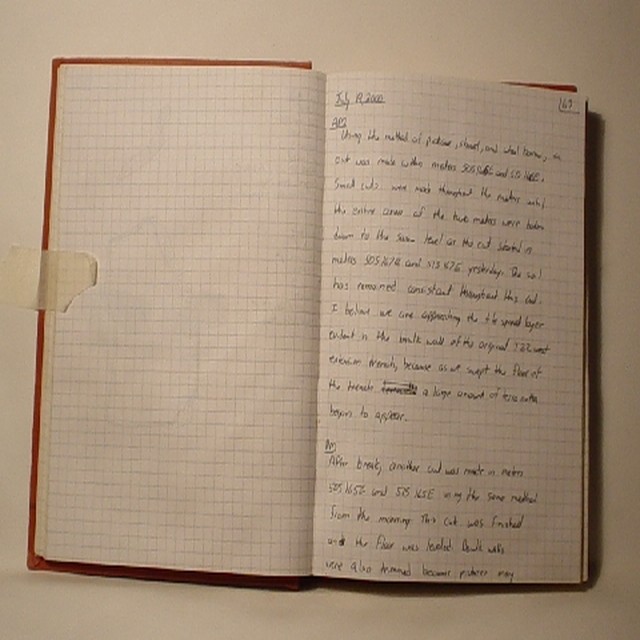 July 19, 2000
67
AM
Using the method of pickaxe, shovel, and wheel barrow, a
cut was made within meters 505/166E and 515/166E.
Small cuts were made throughout the meters until
the entire areas of the two meters were taken
down to the same level as the cut started in
meters 505/167E and 515/167E yesterday. The soil
has remained consistent throughout this cut.
I believe we are approaching the tile spread layer
evident in the baulk wall of the original west
extension trench, because as we swept the floor of
the trench a large amount of terra cotta
begins to appear.
PM
After break, another cut was made in meters
505/165E and 515/165E using the same method
from the morning. This cut was finished
and the floor was leveled. Baulk walls
were also trimmed because pickaxe may